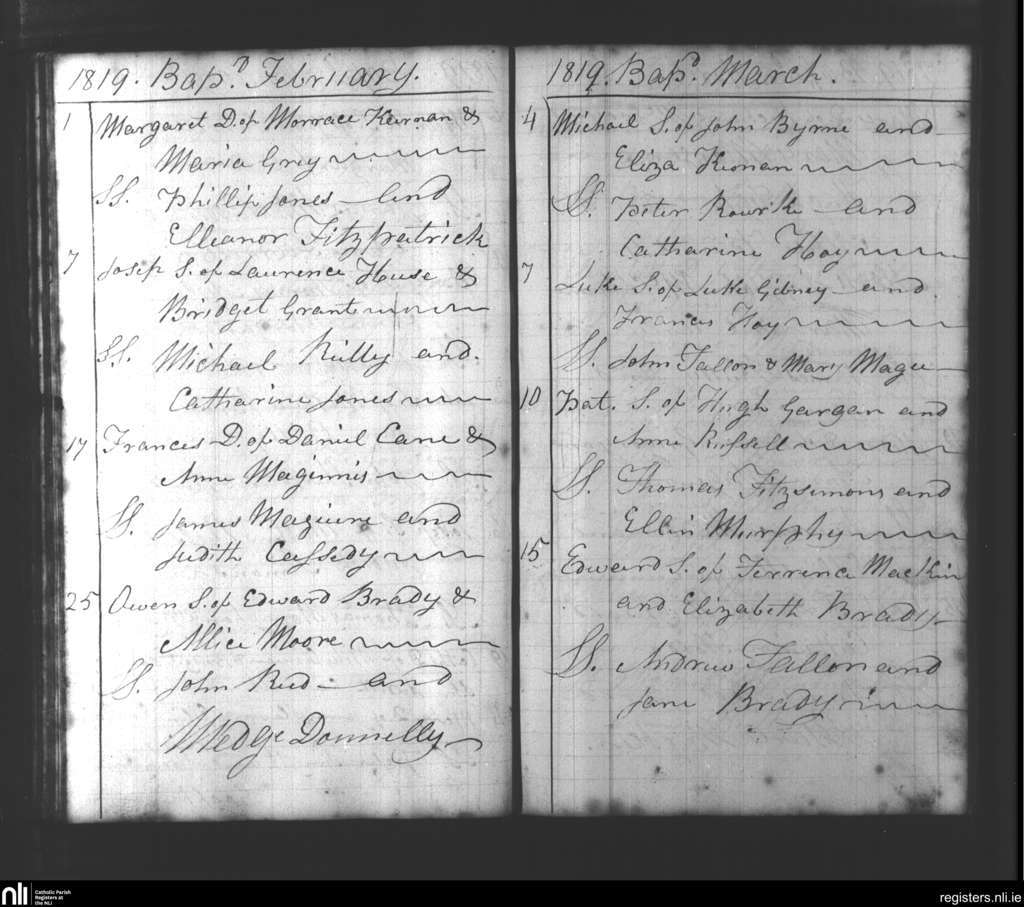 1819. Bap.d February.
1 Margaret D. of Morrace Kernan &
Maria Grey
SS. Phillip Jones and
Elleanor Fitzpatrick
7 Josip S. of Laurence House &
Bridget Grant
SS. Michael Rielly and
Catharine Jones
17 Frances D. of Daniel Cane &
Anne Maginnis
SS. James Maguire and
Judith Cassedy
25 Owen S. of Edward Brady &
Allice Moore
SS. John Reed and
Medge Donnelly
1819. Bap.d March.
4 Michael S. of John Byrne and
Eliza Keonan
SS. Peter Rowrke and
Catharine Hoy
7 Luke S. of Luke Gibney and
Frances Hoy
SS. John Fallon & Mary Magee
10 Pat. S. of Hugh Gargan and
Anne Russell
SS. Thomas Fitzsimons and
Ellin Murphy
15 Edward S. of Terrence Mackin
and Elizabeth Brady
SS. Andrew Fallon and
Jane Brady
nli
Catholic Parish
Registers at
the NLI
registers.nli.ie